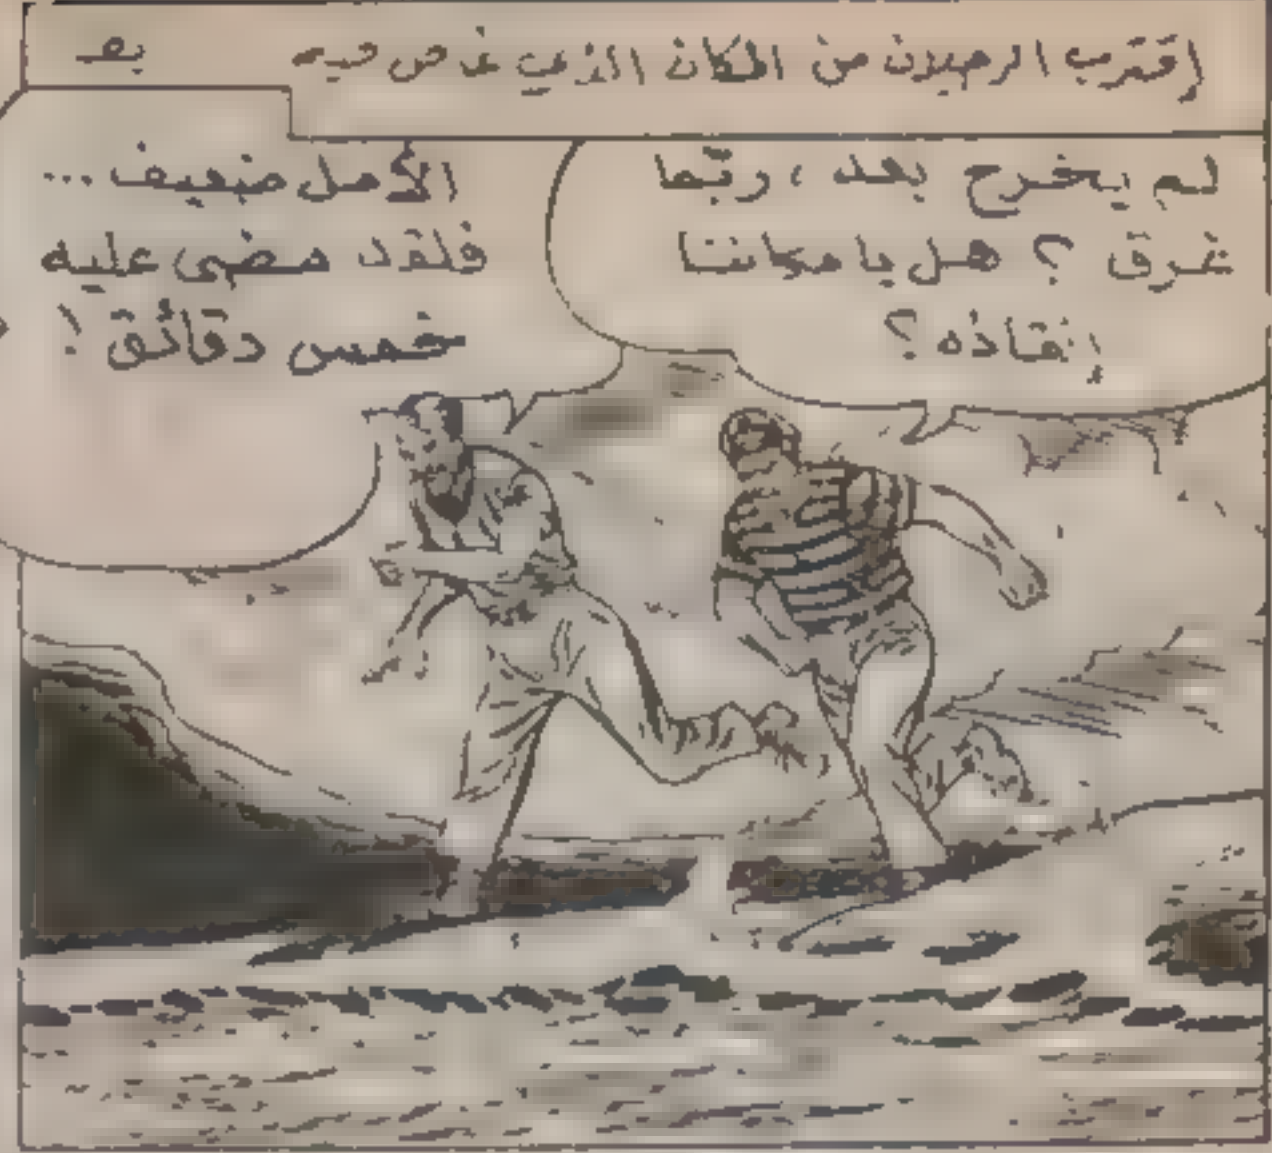 إقترب الرجلان من المكان الذي غاص فيه
لم يخرج بعد ، ربّما
غرق ؟ هل بامكاننا
إنقاذه ؟
الأمل ضعيف ...
فلقد مضى عليه
خمس دقائق !